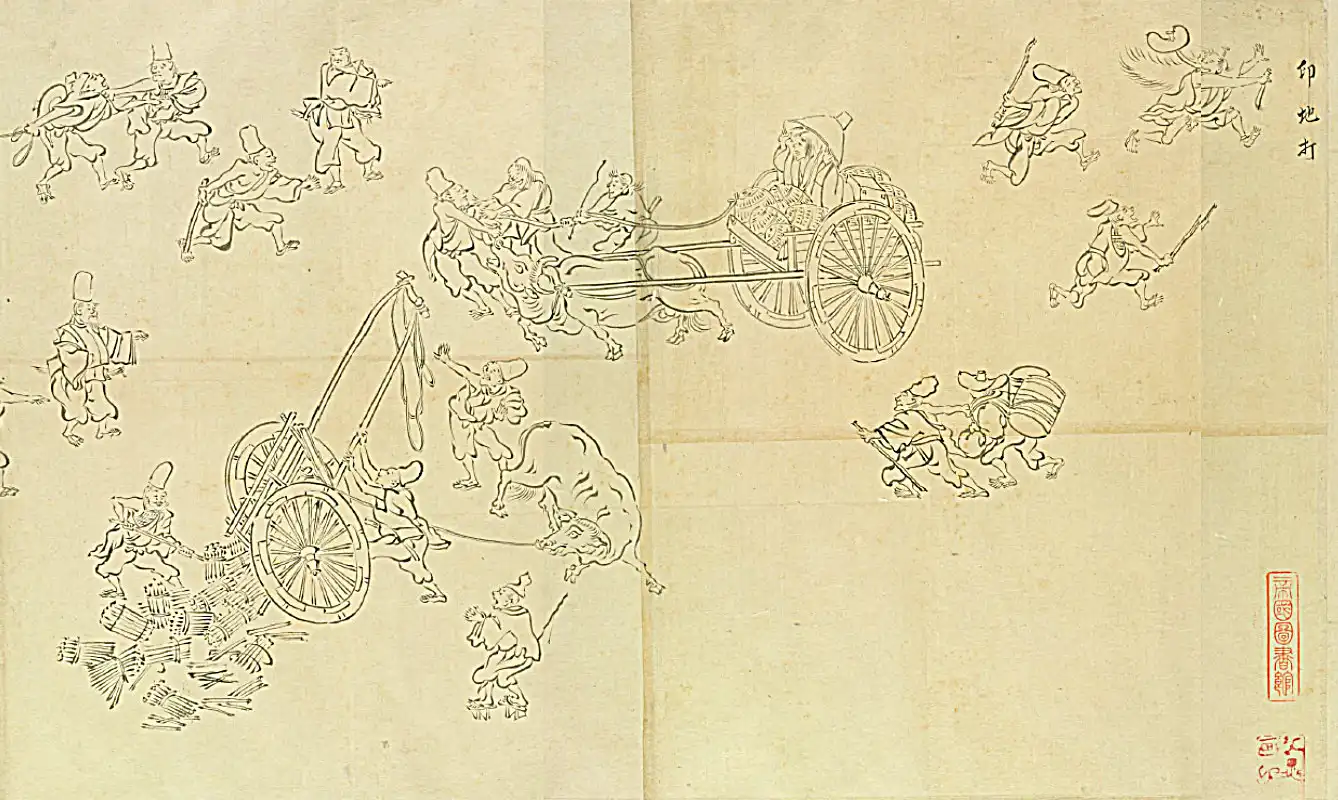 印地打
帝國圖書館